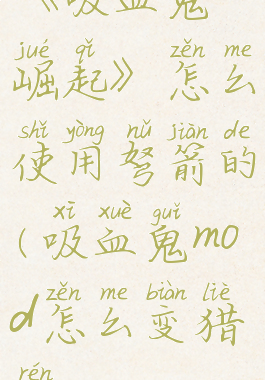 《吸血鬼
jué qǐ zěn me
崛起》 怎么
shǐ yòng nǔ jiàn de
使用弩箭的
xī xuè guǐ
(吸血鬼mo
zěn me biàn liè
d怎么变猎
rén